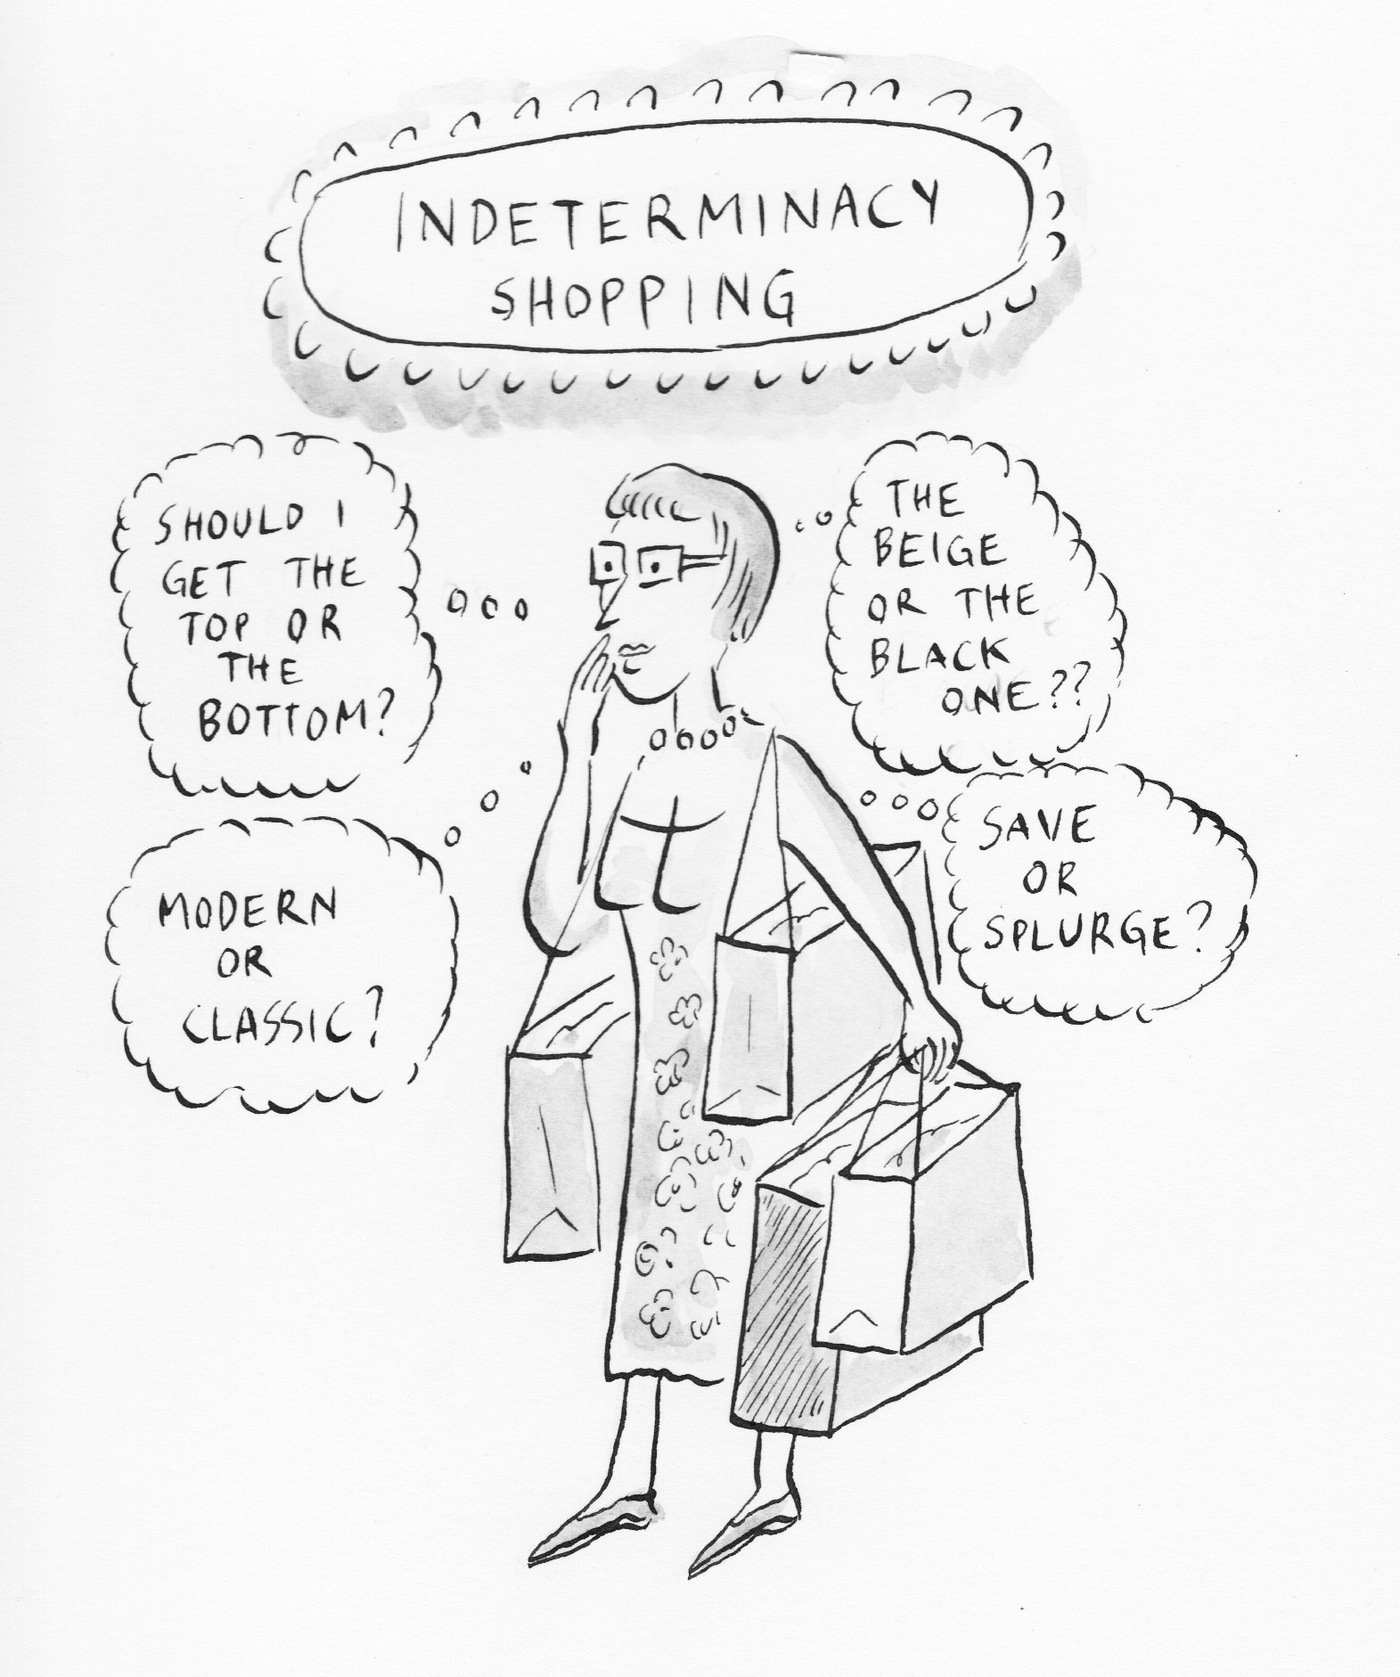 INDETERMINACY
SHOPPING
SHOULD I
GET THE
TOP OR
THE
BOTTOM?
THE
BEIGE
OR THE
BLACK
ONE??
MODERN
OR
CLASSIC?
SAVE
OR
SPLURGE?